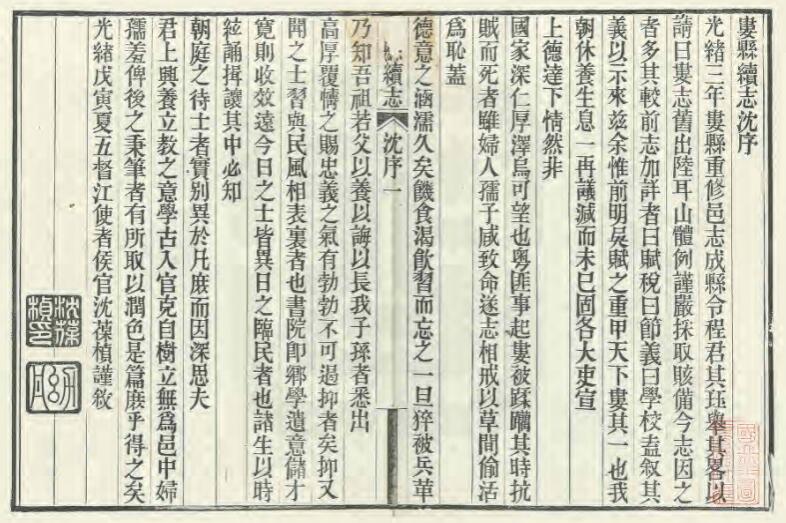 婁縣續志沈序
光緒三年婁縣重修邑志成縣令程君其珏舉其畧以
請曰婁志舊出陸耳山體例謹嚴採取賅備今志因之
者多其較前志加詳者曰賦稅曰節義曰學校盍叙其
義以示來茲余惟前明吳賦之重甲天下婁其一也我
朝休養生息一再議減而未已固各大吏宣
上德達下情然非
國家深仁厚澤烏可望也粵匪事起婁被蹂躪其時抗
賊而死者雖婦人孺子咸致命遂志相戒以草間偷活
爲恥蓋
德意之涵濡久矣饑食渴飲習而忘之一旦猝被兵革
續志
沈序
一
乃知吾祖若父以養以誨以長我子孫者悉出
高厚覆幬之賜忠義之氣有勃勃不可遏抑者矣抑又
聞之士習與民風相表裏者也書院卽鄉學遺意儲才
寬則收效遠今日之士皆異日之臨民者也諸生以時
絃誦揖讓其中必知
朝庭之待士者實別異於凡庶而因深思夫
君上興養立教之意學古入官克自樹立無爲邑中婦
孺羞俾後之秉筆者有所取以潤色是篇庶乎得之矣
光緒戊寅夏五督江使者侯官沈葆楨謹敘
沈葆楨印
幼丹